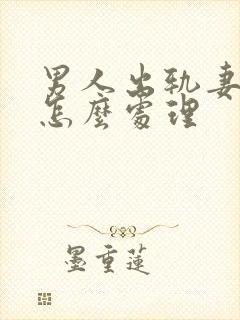 男人出轨妻
怎麼處理
墨重蓮